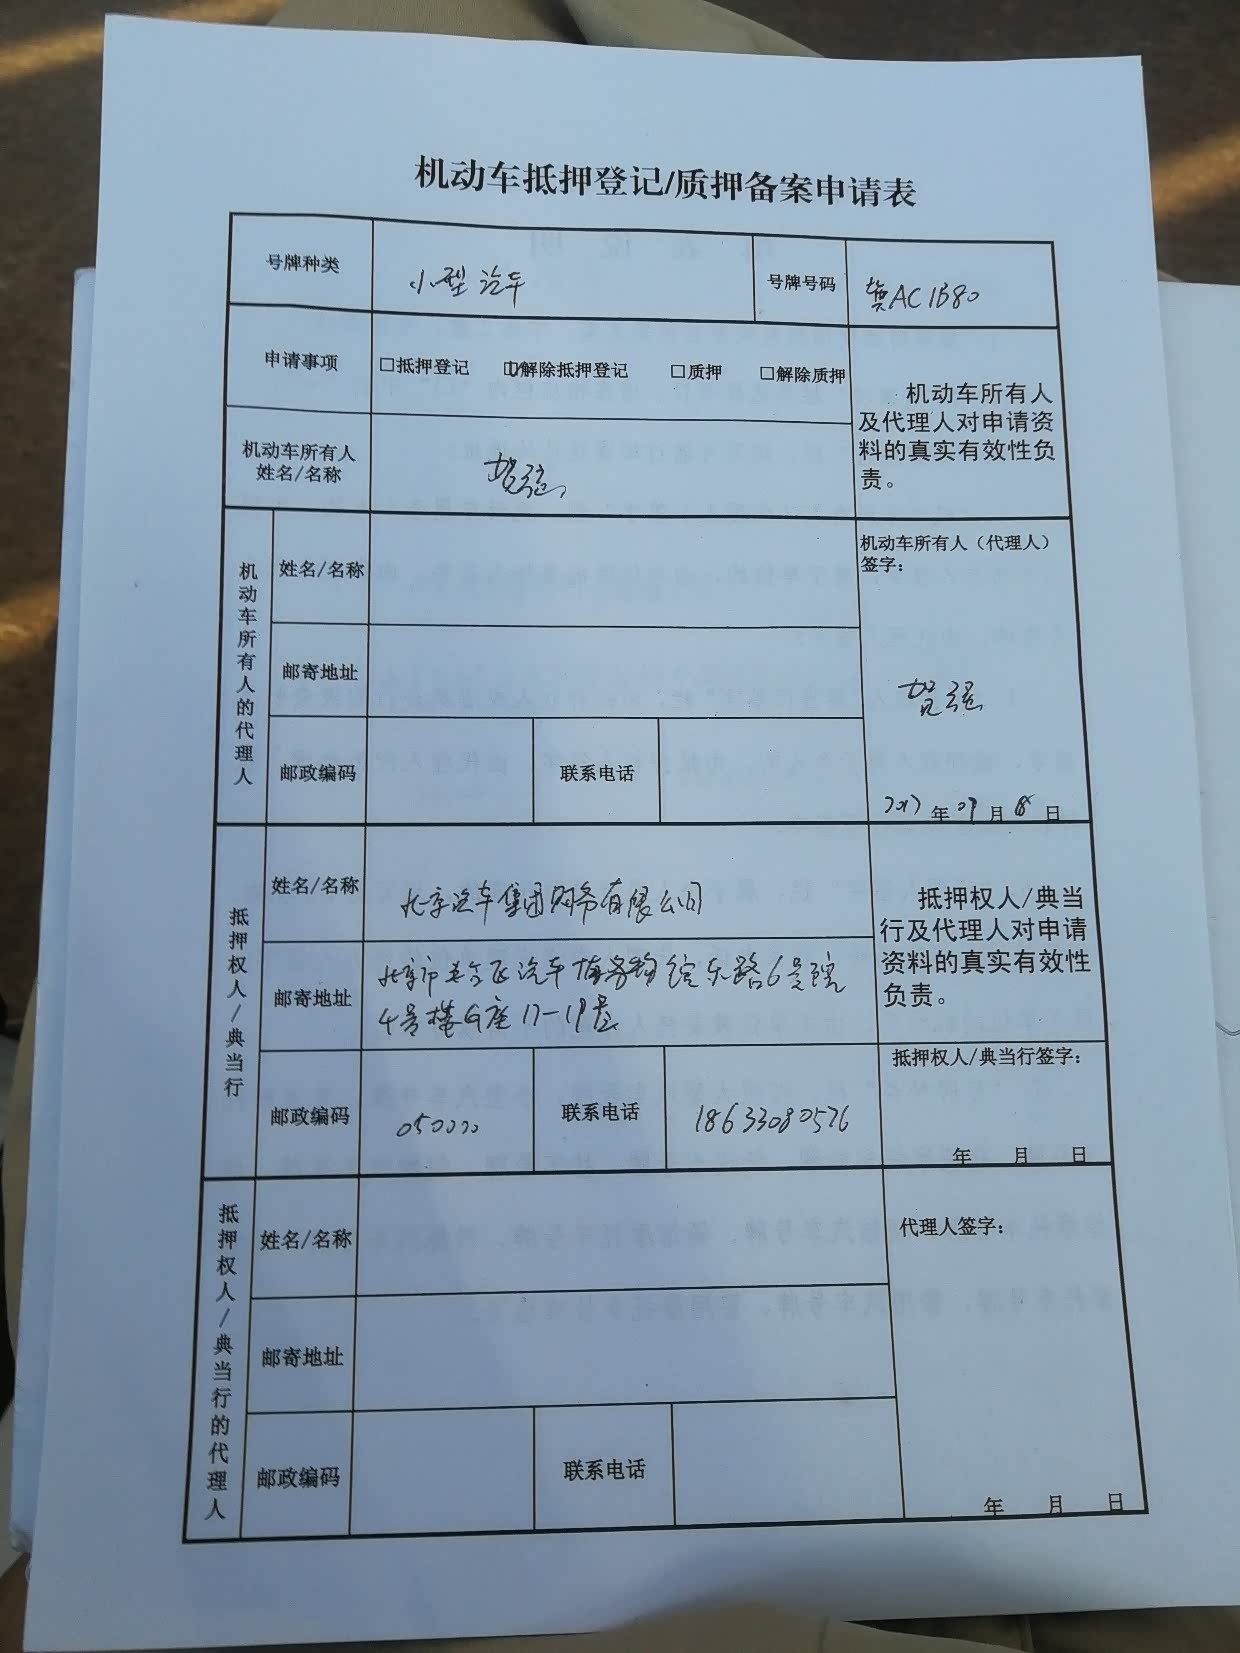 机动车抵押登记/质押备案申请表
号牌种类
小型汽车
号牌号码
冀AC1B80
申请事项
□抵押登记 ☑解除抵押登记 □质押 □解除质押
机动车所有人
姓名/名称
贺强
机动车所有人
及代理人对申请资
料的真实有效性负
责。
机动车所有人的代理人
姓名/名称
邮寄地址
邮政编码
联系电话
机动车所有人（代理人）
签字：
贺强
2017年09月18日
抵押权人/典当行
姓名/名称
北京汽车集团财务有限公司
邮寄地址
北京市 汽车 东路6号院
4号楼G座17-19层
邮政编码
050000
联系电话
18633080576
抵押权人/典当
行及代理人对申请
资料的真实有效性
负责。
抵押权人/典当行签字：
年 月 日
抵押权人/典当行的代理人
姓名/名称
邮寄地址
邮政编码
联系电话
代理人签字：
年 月 日